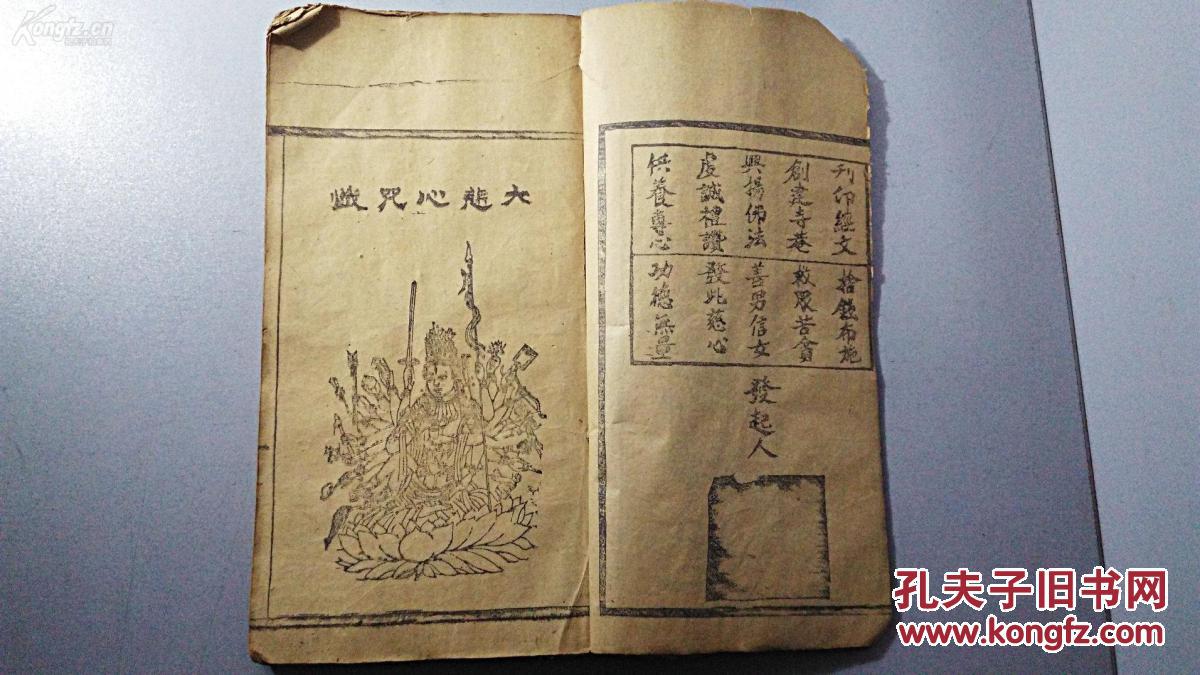 Kongfz.cn
刊印經文 捨錢布施
創建寺菴 救眾苦貧
興揚佛法 善男信女
虔誠禮讚 發此慈心
供養專心 功德無量
發起人
大悲心咒懺
孔夫子旧书网
www.kongfz.com